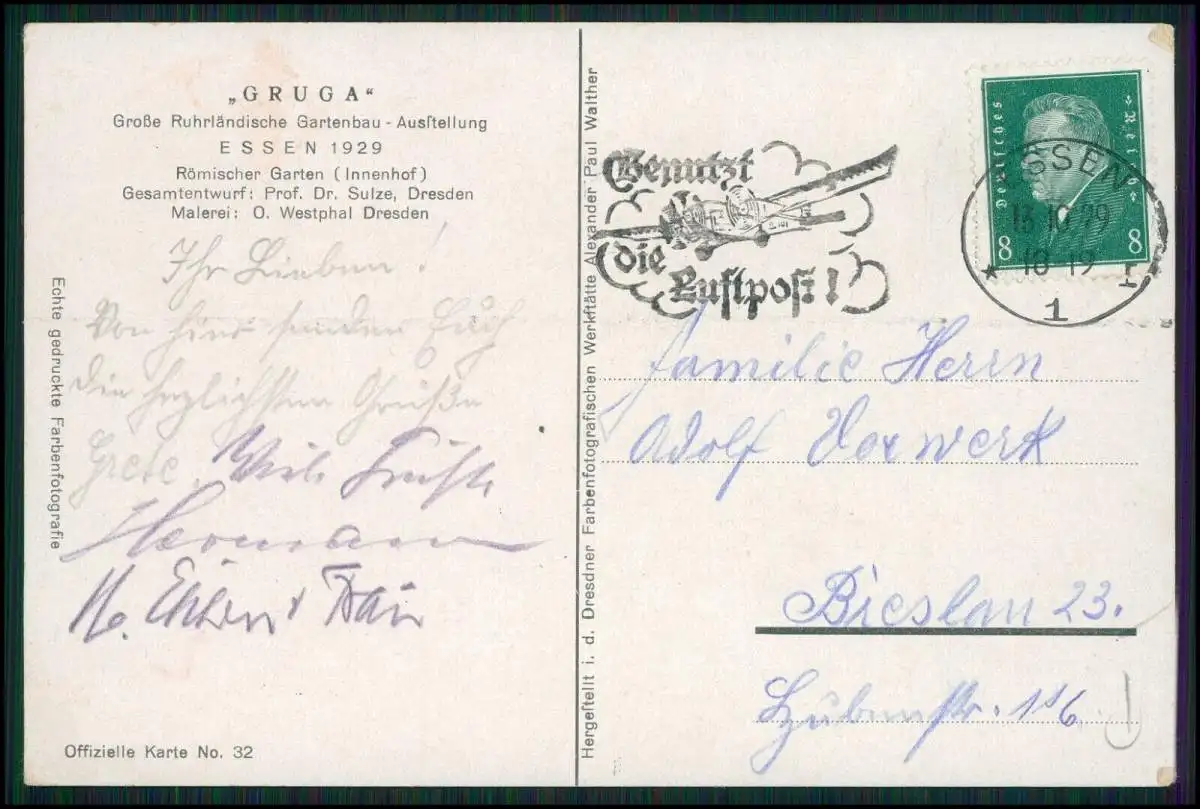 „GRUGA“
Große Ruhrländische Gartenbau - Ausſtellung
ESSEN 1929
Römischer Garten (Innenhof)
Gesamtentwurf: Prof. Dr. Sulze, Dresden
Malerei: O. Westphal Dresden
Ihr Lieben!
Von hier senden Euch
die herzlichsten Grüße
Grete. Viele Grüße
Hermann
Frau
Echte gedruckte Farbenfotografie
Offizielle Karte No. 32
Hergeſtellt i. d. Dresdner Farbenfotografischen Werkſtätte Alexander Paul Walther
Benutzt
die
Luftpoſt!
Deutsches Reich
8 8
ESSEN
18.10.29
18-19
1
Familie Herrn
Adolf Vorwerk
Breslau 23.